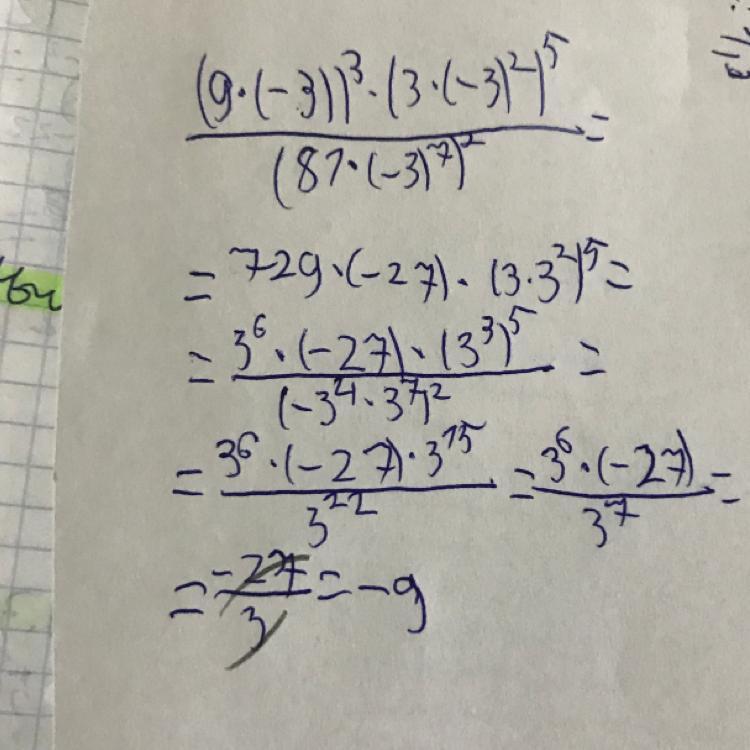 (9·(-3))³·(3·(-3)²)⁵
/ (81·(-3)⁷)² =
= 729·(-27)·(3·3²)⁵ =
= 3⁶·(-27)·(3³)⁵ / (-3⁴·3⁷)² =
= 3⁶·(-27)·3¹⁵ / 3²² = 3⁶·(-27) / 3⁷ =
= -27 / 3 = -9